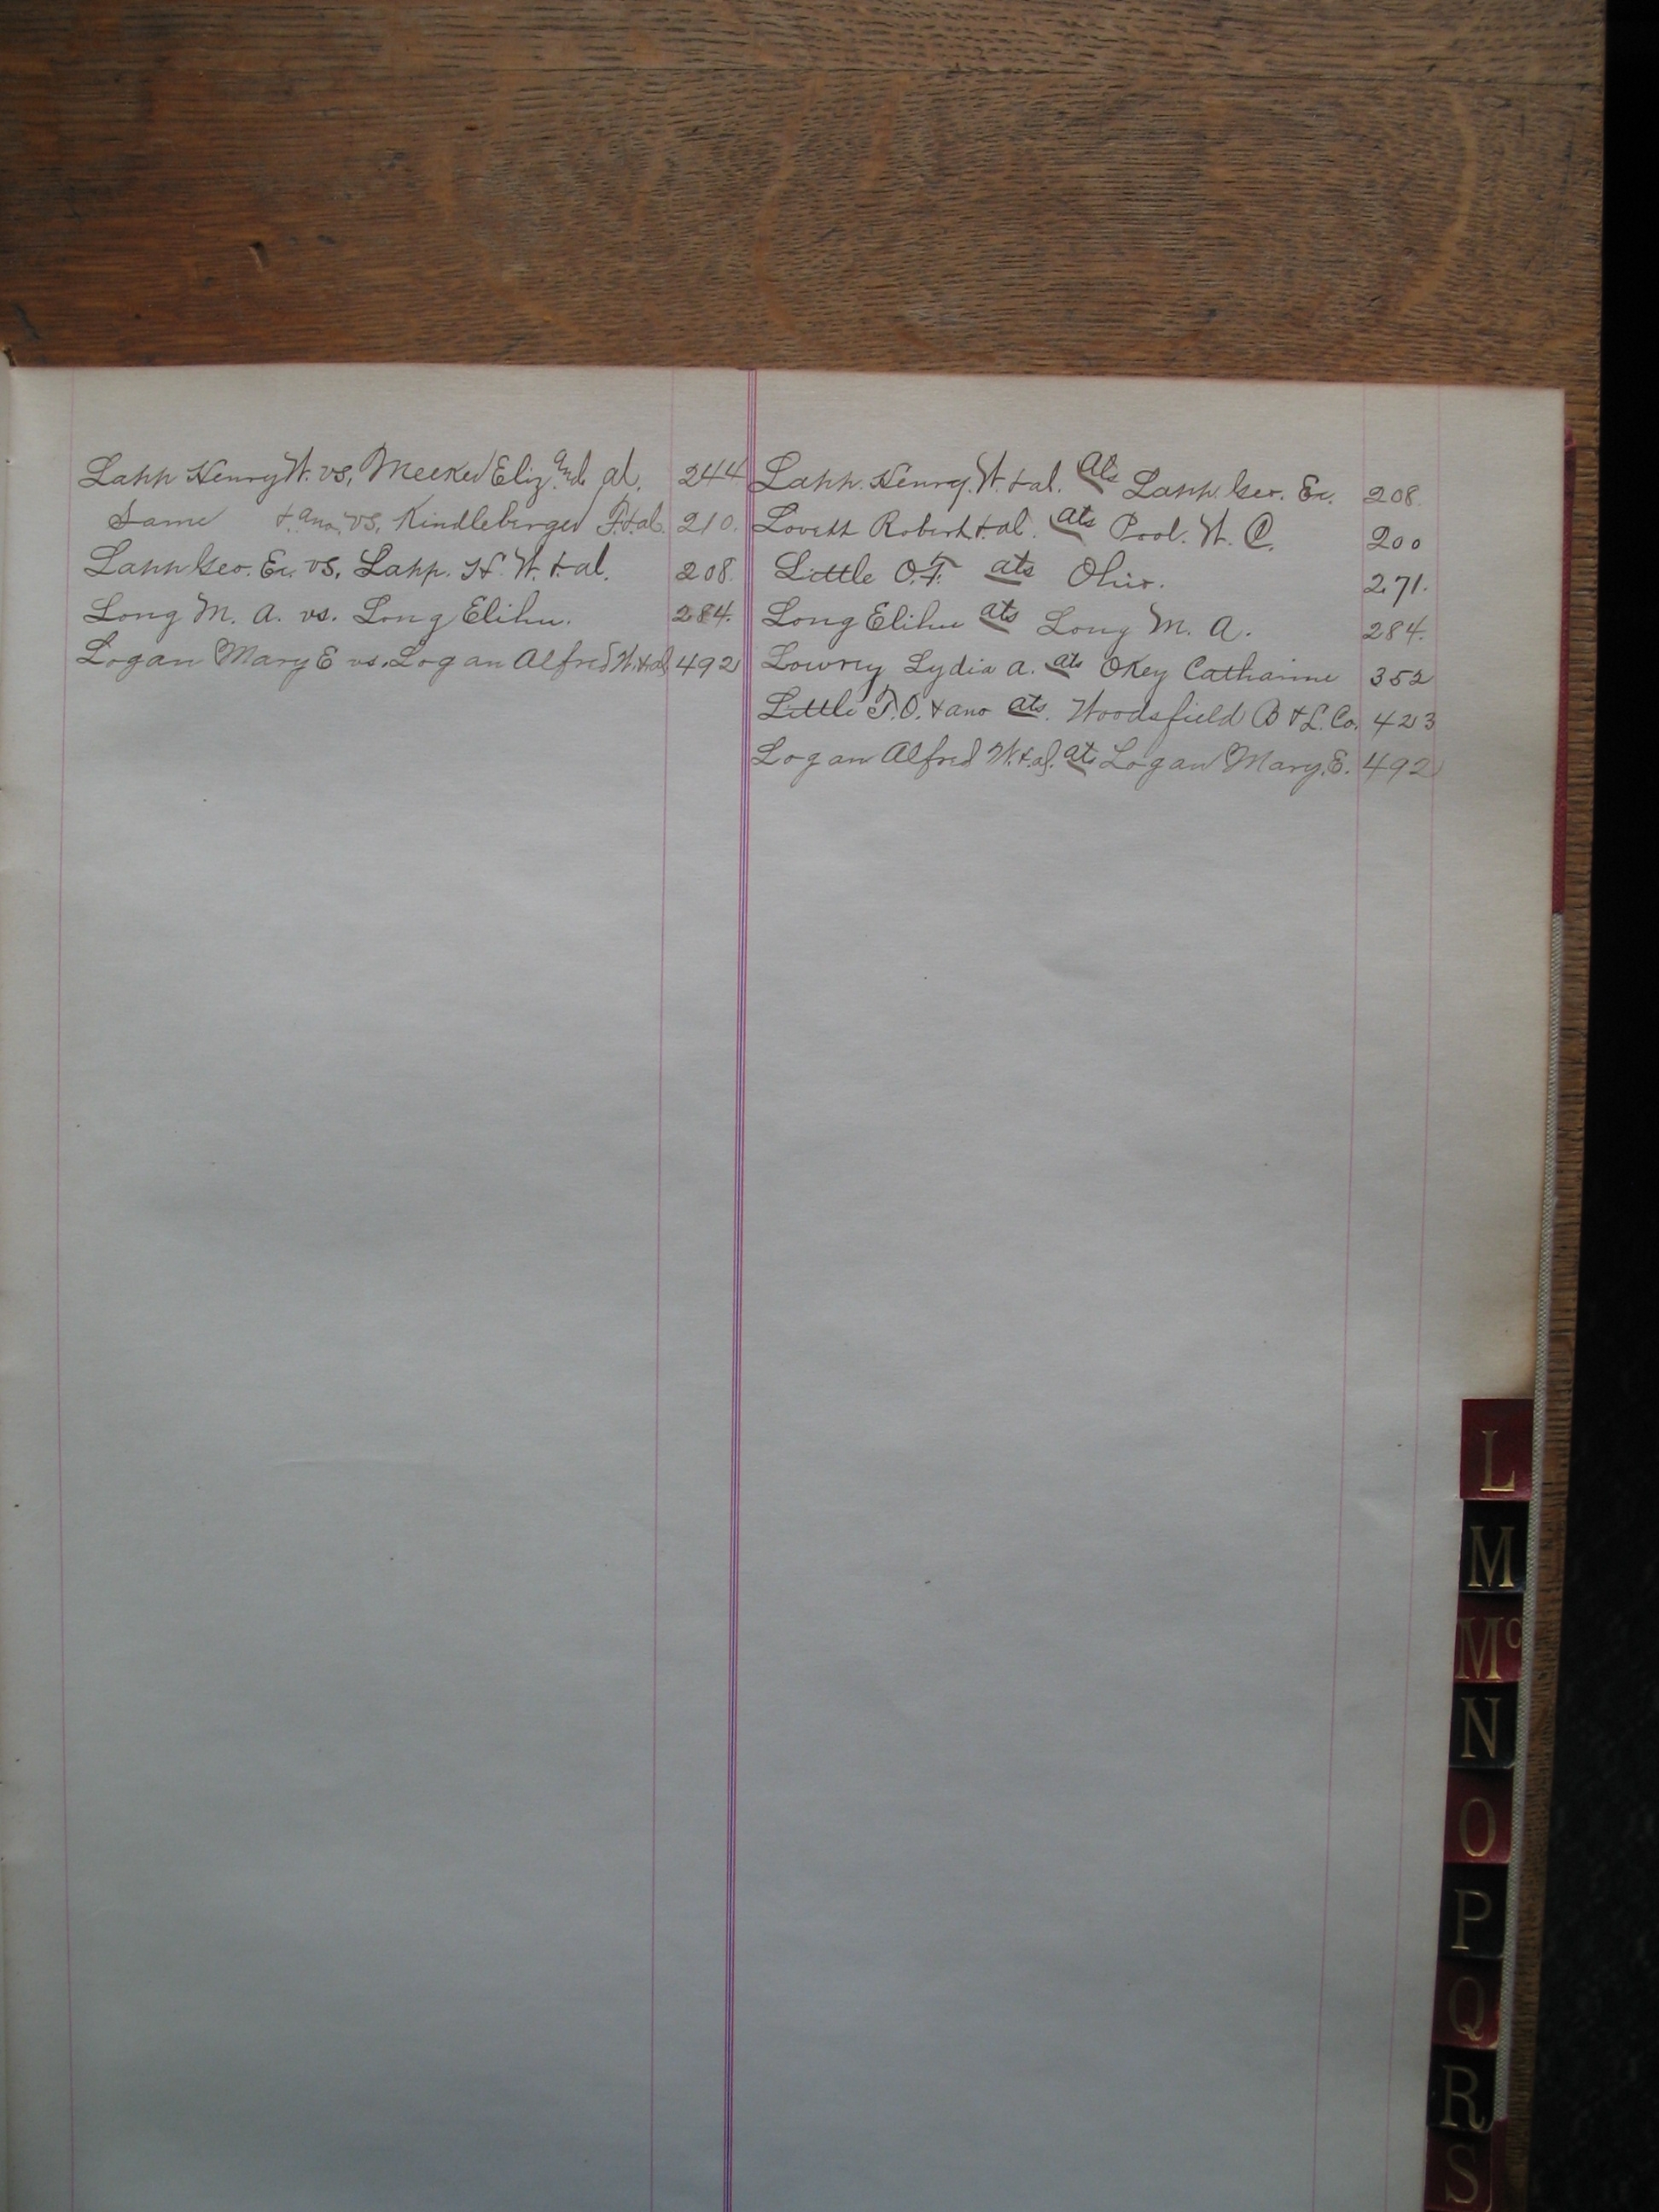 Lapp Henry W. vs. Meeker Eliz. and al. 244
Same & ano. vs. Kindleberger F. & al. 210.
Lapp Geo. Ex. vs. Lapp. H. W. & al. 208.
Long M. A. vs. Long Elihu. 284.
Logan Mary E vs. Logan Alfred W. & al 492
Lapp. Henry. W. & al. ats Lapp. Geo. Ex. 208.
Lovett Robert & al. ats Pool. W. C. 200
Little O. T. ats Ohio. 271.
Long Elihu ats Long M. A. 284.
Lowrey Lydia A. ats Okey Catharine 352
Little T. O. & ano ats. Woodsfield B & L. Co. 423
Logan Alfred W. & al. ats Logan Mary. E. 492
L
M
Mc
N
O
P
Q
R
S